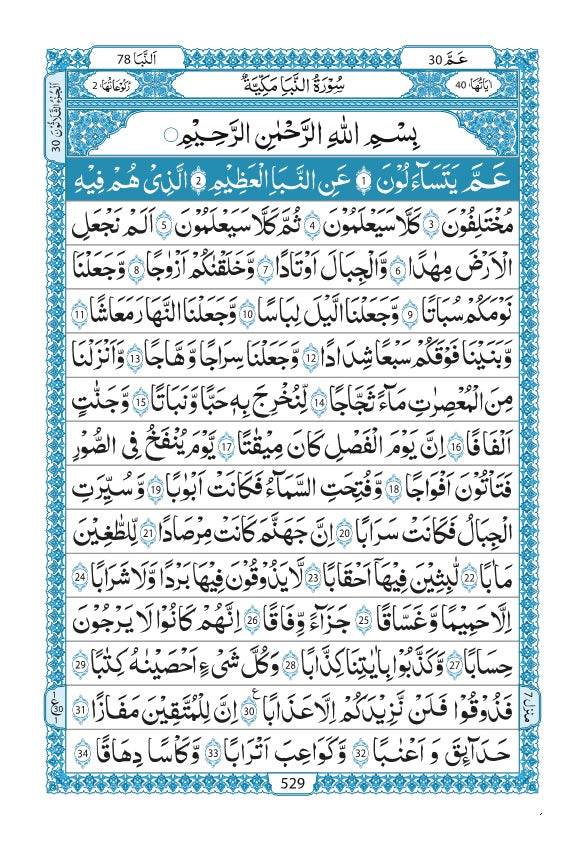 عَمَّ 30
اَلنَّبَا 78
اٰیَاتُهَا: 40
سُوْرَةُ النَّبَاِ مَكِّیَّةٌ
رُكُوْعَاتُهَا: 2
اَلْجُزْءُ الثَّلَاثُوْنَ 30
بِسْمِ اللّٰهِ الرَّحْمٰنِ الرَّحِیْمِ
عَمَّ یَتَسَآءَلُوْنَ 1 عَنِ النَّبَاِ الْعَظِیْمِ 2 الَّذِیْ هُمْ فِیْهِ
مُخْتَلِفُوْنَ 3 كَلَّا سَیَعْلَمُوْنَ 4 ثُمَّ كَلَّا سَیَعْلَمُوْنَ 5 اَلَمْ نَجْعَلِ
الْاَرْضَ مِهٰدًا 6 وَّالْجِبَالَ اَوْتَادًا 7 وَّخَلَقْنٰكُمْ اَزْوَاجًا 8 وَّجَعَلْنَا
نَوْمَكُمْ سُبَاتًا 9 وَّجَعَلْنَا الَّیْلَ لِبَاسًا 10 وَّجَعَلْنَا النَّهَارَ مَعَاشًا 11
وَّبَنَیْنَا فَوْقَكُمْ سَبْعًا شِدَادًا 12 وَّجَعَلْنَا سِرَاجًا وَّهَّاجًا 13 وَّاَنْزَلْنَا
مِنَ الْمُعْصِرٰتِ مَآءً ثَجَّاجًا 14 لِّنُخْرِجَ بِهٖ حَبًّا وَّنَبَاتًا 15 وَّجَنّٰتٍ
اَلْفَافًا 16 اِنَّ یَوْمَ الْفَصْلِ كَانَ مِیْقَاتًا 17 یَّوْمَ یُنْفَخُ فِی الصُّوْرِ
فَتَاْتُوْنَ اَفْوَاجًا 18 وَّفُتِحَتِ السَّمَآءُ فَكَانَتْ اَبْوَابًا 19 وَّسُیِّرَتِ
الْجِبَالُ فَكَانَتْ سَرَابًا 20 اِنَّ جَهَنَّمَ كَانَتْ مِرْصَادًا 21 لِّلطَّاغِیْنَ
مَاٰبًا 22 لّٰبِثِیْنَ فِیْهَاۤ اَحْقَابًا 23 لَا یَذُوْقُوْنَ فِیْهَا بَرْدًا وَّلَا شَرَابًا 24
اِلَّا حَمِیْمًا وَّغَسَّاقًا 25 جَزَآءً وِّفَاقًا 26 اِنَّهُمْ كَانُوْا لَا یَرْجُوْنَ
حِسَابًا 27 وَّكَذَّبُوْا بِاٰیٰتِنَا كِذَّابًا 28 وَكُلَّ شَیْءٍ اَحْصَیْنٰهُ كِتٰبًا 29
فَذُوْقُوْا فَلَنْ نَّزِیْدَكُمْ اِلَّا عَذَابًا 30 ع اِنَّ لِلْمُتَّقِیْنَ مَفَازًا 31
حَدَآئِقَ وَ اَعْنٰبًا 32 وَّكَوَاعِبَ اَتْرَابًا 33 وَّكَاْسًا دِهَاقًا 34
منزل 7
ع 30
529